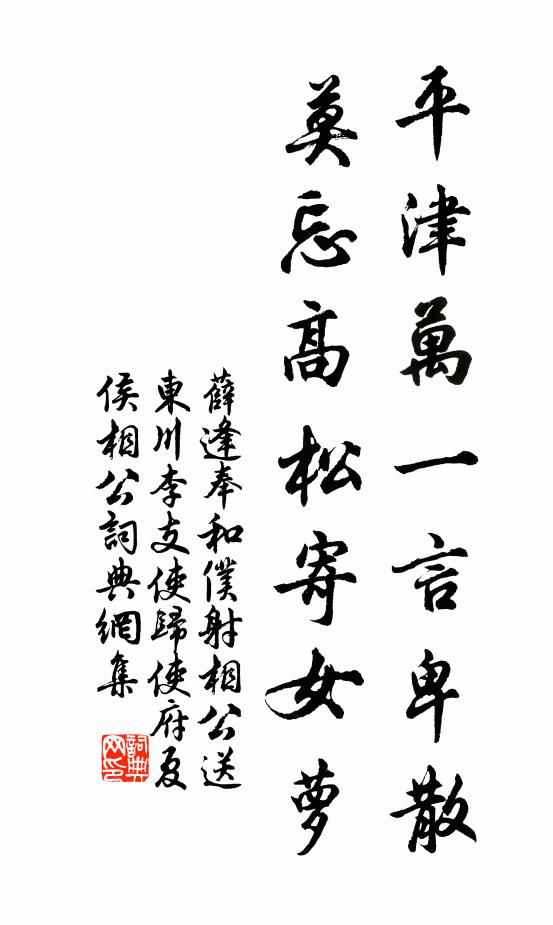 平津萬一言卑散
莫忘高松寄女蘿
薛逢奉和僕射相公送
東川李支使歸使府夏
侯相公詞典網集
詞典
网印